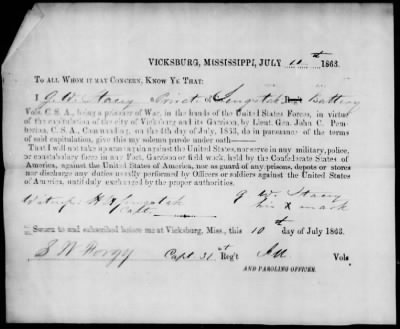 VICKSBURG, MISSISSIPPI, JULY 10th 1863.
TO ALL WHOM IT MAY CONCERN, KNOW YE THAT:
I G. W. Stacey Private of Battery
Vols. C. S. A., being a prisoner of War, in the hands of the United States Forces, in virtue
of the capitulation of the city of Vicksburg and its Garrison, by Lieut. Gen. John C. Pem-
berton, C. S. A., Commanding, on the 4th day of July, 1863, do in pursuance of the terms
of said capitulation, give this my solemn parole under oath——
That I will not take up arms again against the United States, nor serve in any military, police,
or constabulary force in any Fort, Garrison or field work, held by the Confederate States of
America, against the United States of America, nor as guard of any prisons, depots or stores
nor discharge any duties usually performed by Officers or soldiers against the United States
of America, until duly exchanged by the proper authorities.
G W. Stacy
Capt. his X mark
Sworn to and subscribed before me at Vicksburg, Miss., this 10th day of July 1863.
Capt 31st Reg't Ill Vols
AND PAROLING OFFICER.